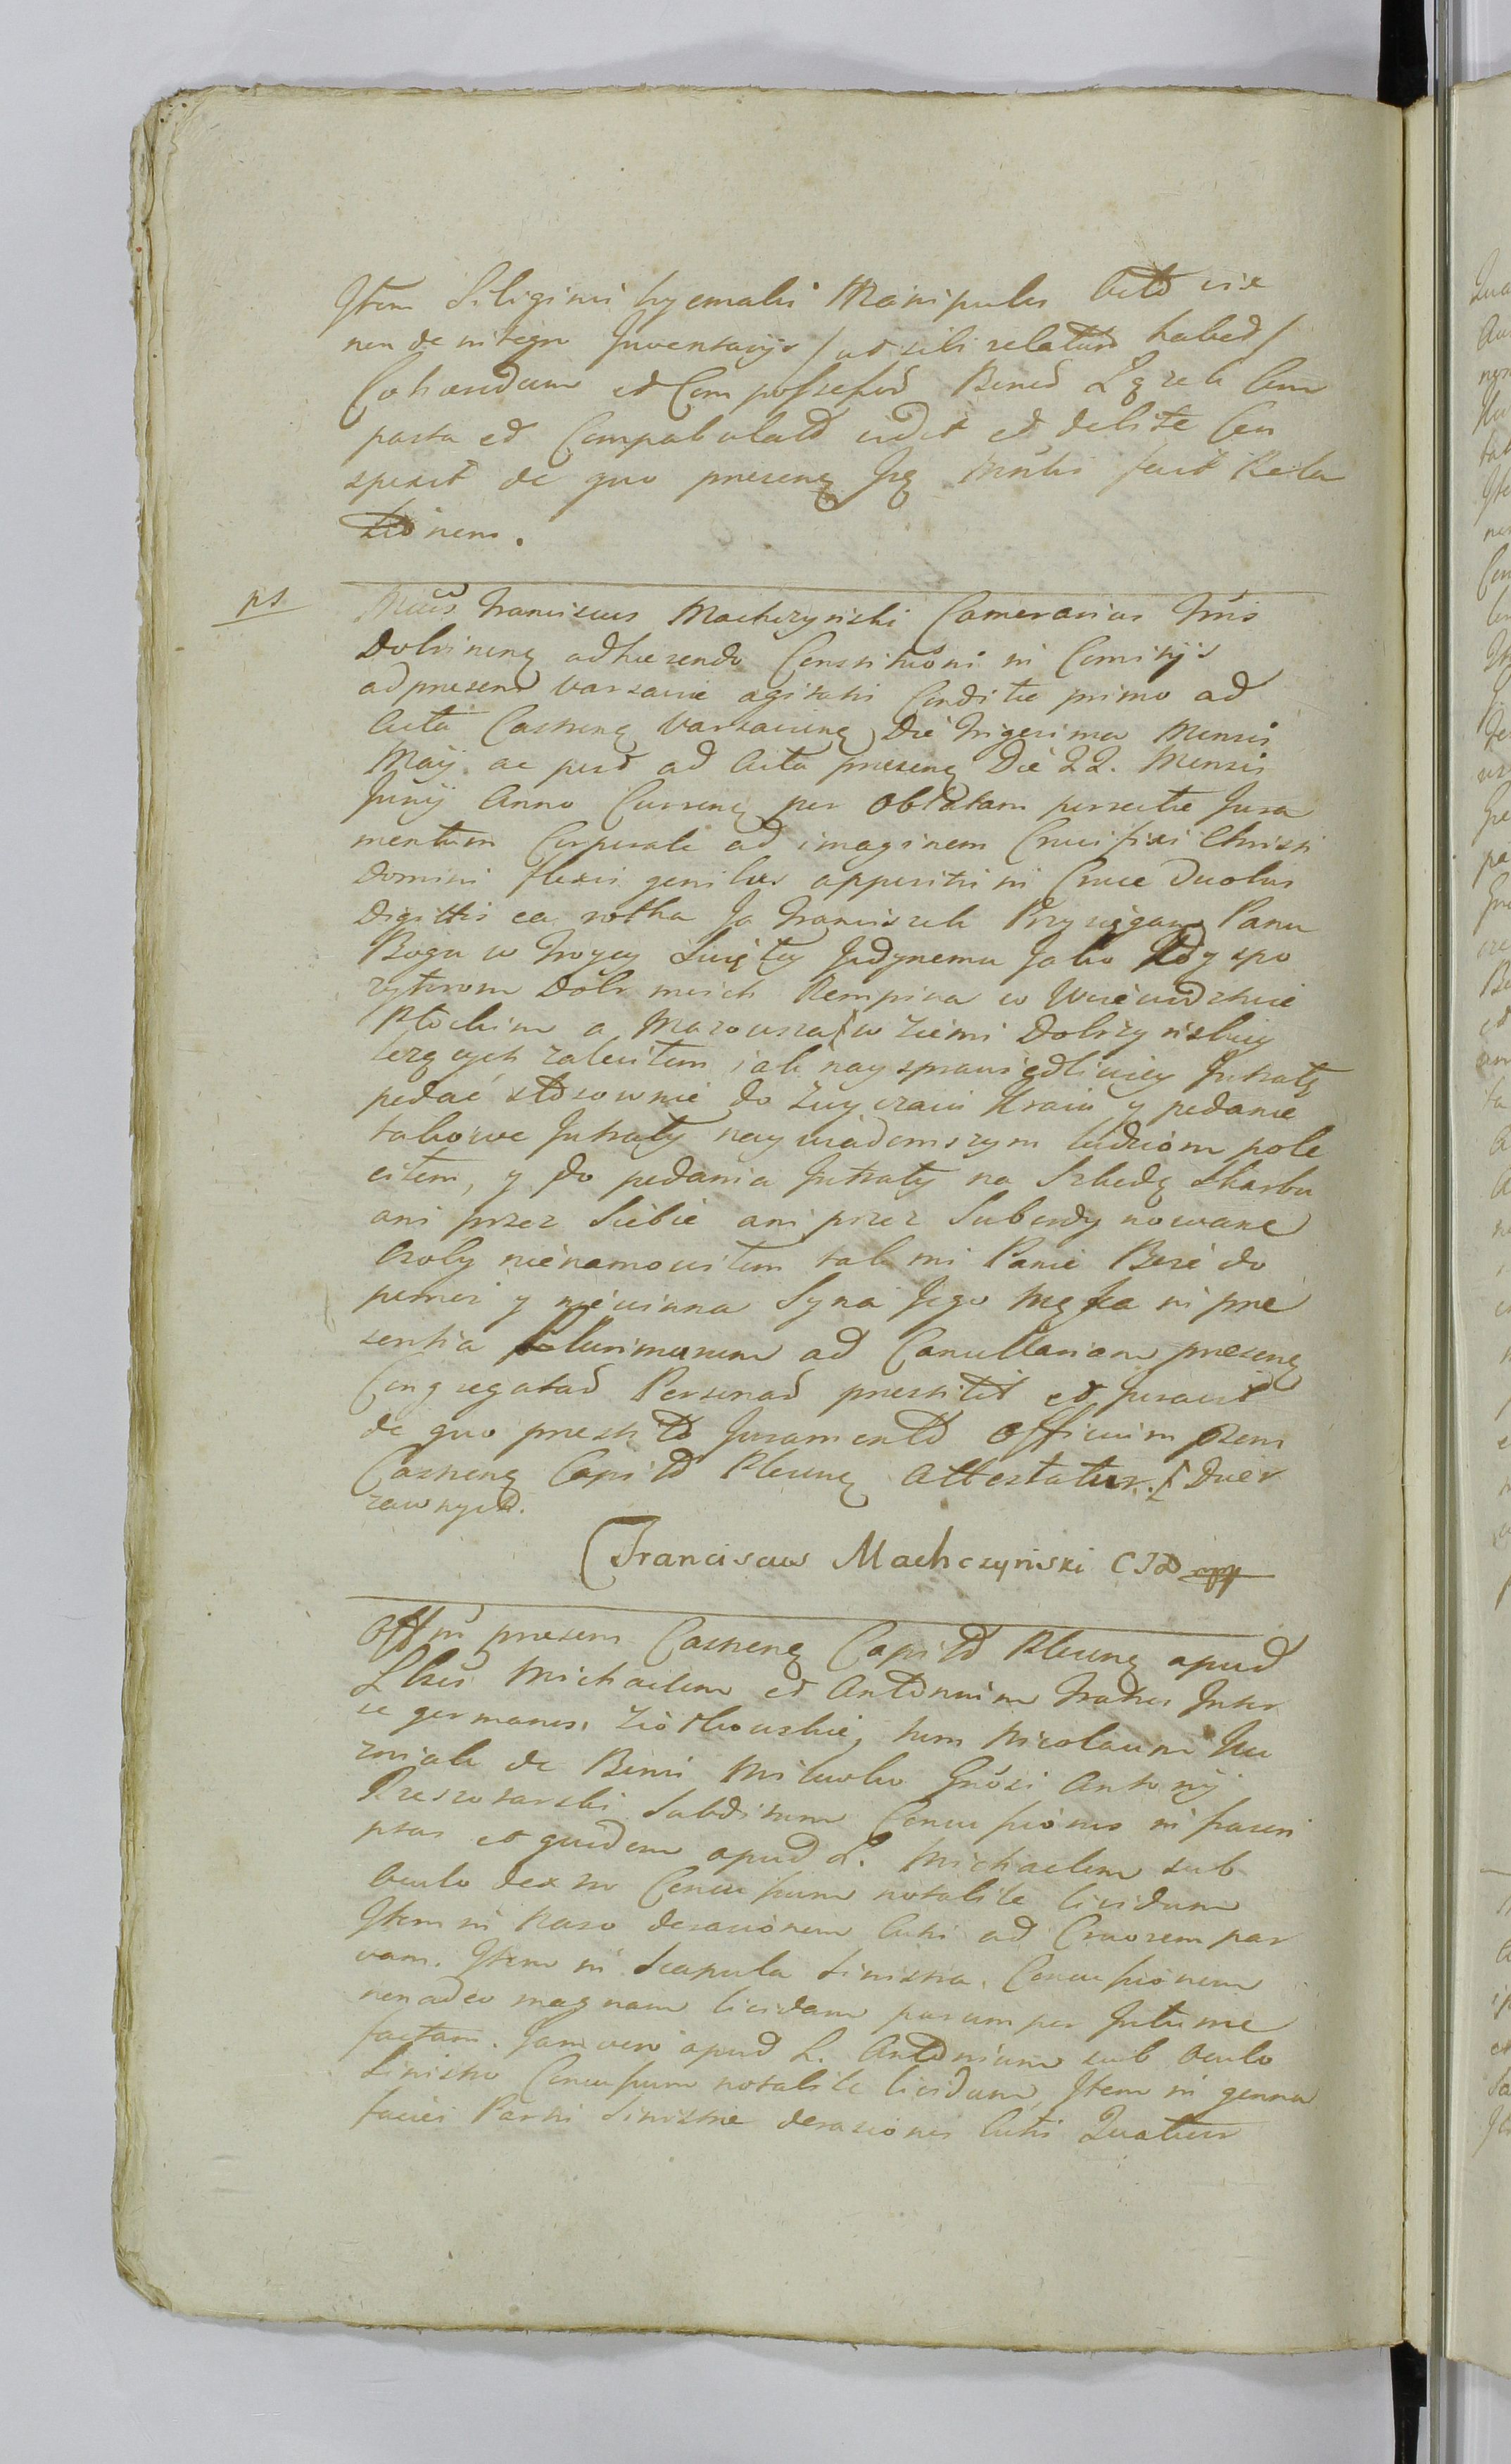 Item Siliginis hyemalis Manipulis Octo vix
non de integro Inventarijs / ut sibi relatum habet /
Cohaeredum et Compossessorum Bonorum Łązek Com
pasta et Compabulata vidit et debite Con
spexit de quo praesens Idem Mnlis fecit Rela
tionem.
ps.
Mcus Franciscus Machczyński Camerarius Trris
Dobrinensis adhaerendo Constitutioni in Comitijs
ad praesens Varsaviae agitatis Conditae primo ad
Acta Castrensia Varsaviensia Die Trigesima Mensis
Maij ac post ad Acta praesentia Die 22. Mensis
Junij Anno Currenti per Oblatam porrectae Jura
mentum Corporale ad imaginem Crucifixi Christi
Domini flexis genibus appositis in Cruce duobus
Digittis ea rotha Ja Franciszek Przysięgam Panu
Bogu w Troycy Swiętey Jedynemu Jako Ja dyspo
zytorom Dóbr moich Rempina w Woiewodztwie
Płockim a Mazowsza w Ziemi Dobrzynskiey
leżących zaleciłem iak naysprawiedliwiey Intratę
podać stosownie do zwyczaiu Kraiu y podanie
takowe Intraty naywiadomszym ludziom pole
ciłem, y do podania Intraty na Szkodę Skarbu
ani przez Siebie ani przez Subordynowane
Osoby nienamowiłem tak mi Panie Boże do
pomoż y niewinna Syna Jego Męka in prae
sentia Plurimarum ad Cancellariam praesentem
Congregatarum Personarum praestitit et juravit
de quo praestito Juramento Officium praesens
Castrense Capitle Plocense Attestatur. Dzier
zawnych.
Franciscus Machczyński CTD mpp
Offm praesens Castrense Capitle Plocense apud
Lbres Michaelem et Antonium Fratres Inter
se germanos Ziołkowskie, tum Nicolaum
de Bonis Milewko Gnosi Antonij
Rzeszotarski Subditum Concussiones infrascri
ptas et quidem apud L. Michaelem sub
Oculo dextro Concussum notabile lividum
Item in Naso derasionem Cutis ad Cruorem par
vam. Item in Scapula Sinistra Concussionem
non adeo magnam lividam parumper Intume
factam. Jam vero apud L. Antonium sub Oculo
Sinistro Concussum notabile lividum, Item in genna
faciei Partis Sinistrae derasiones Cutis Quatuor